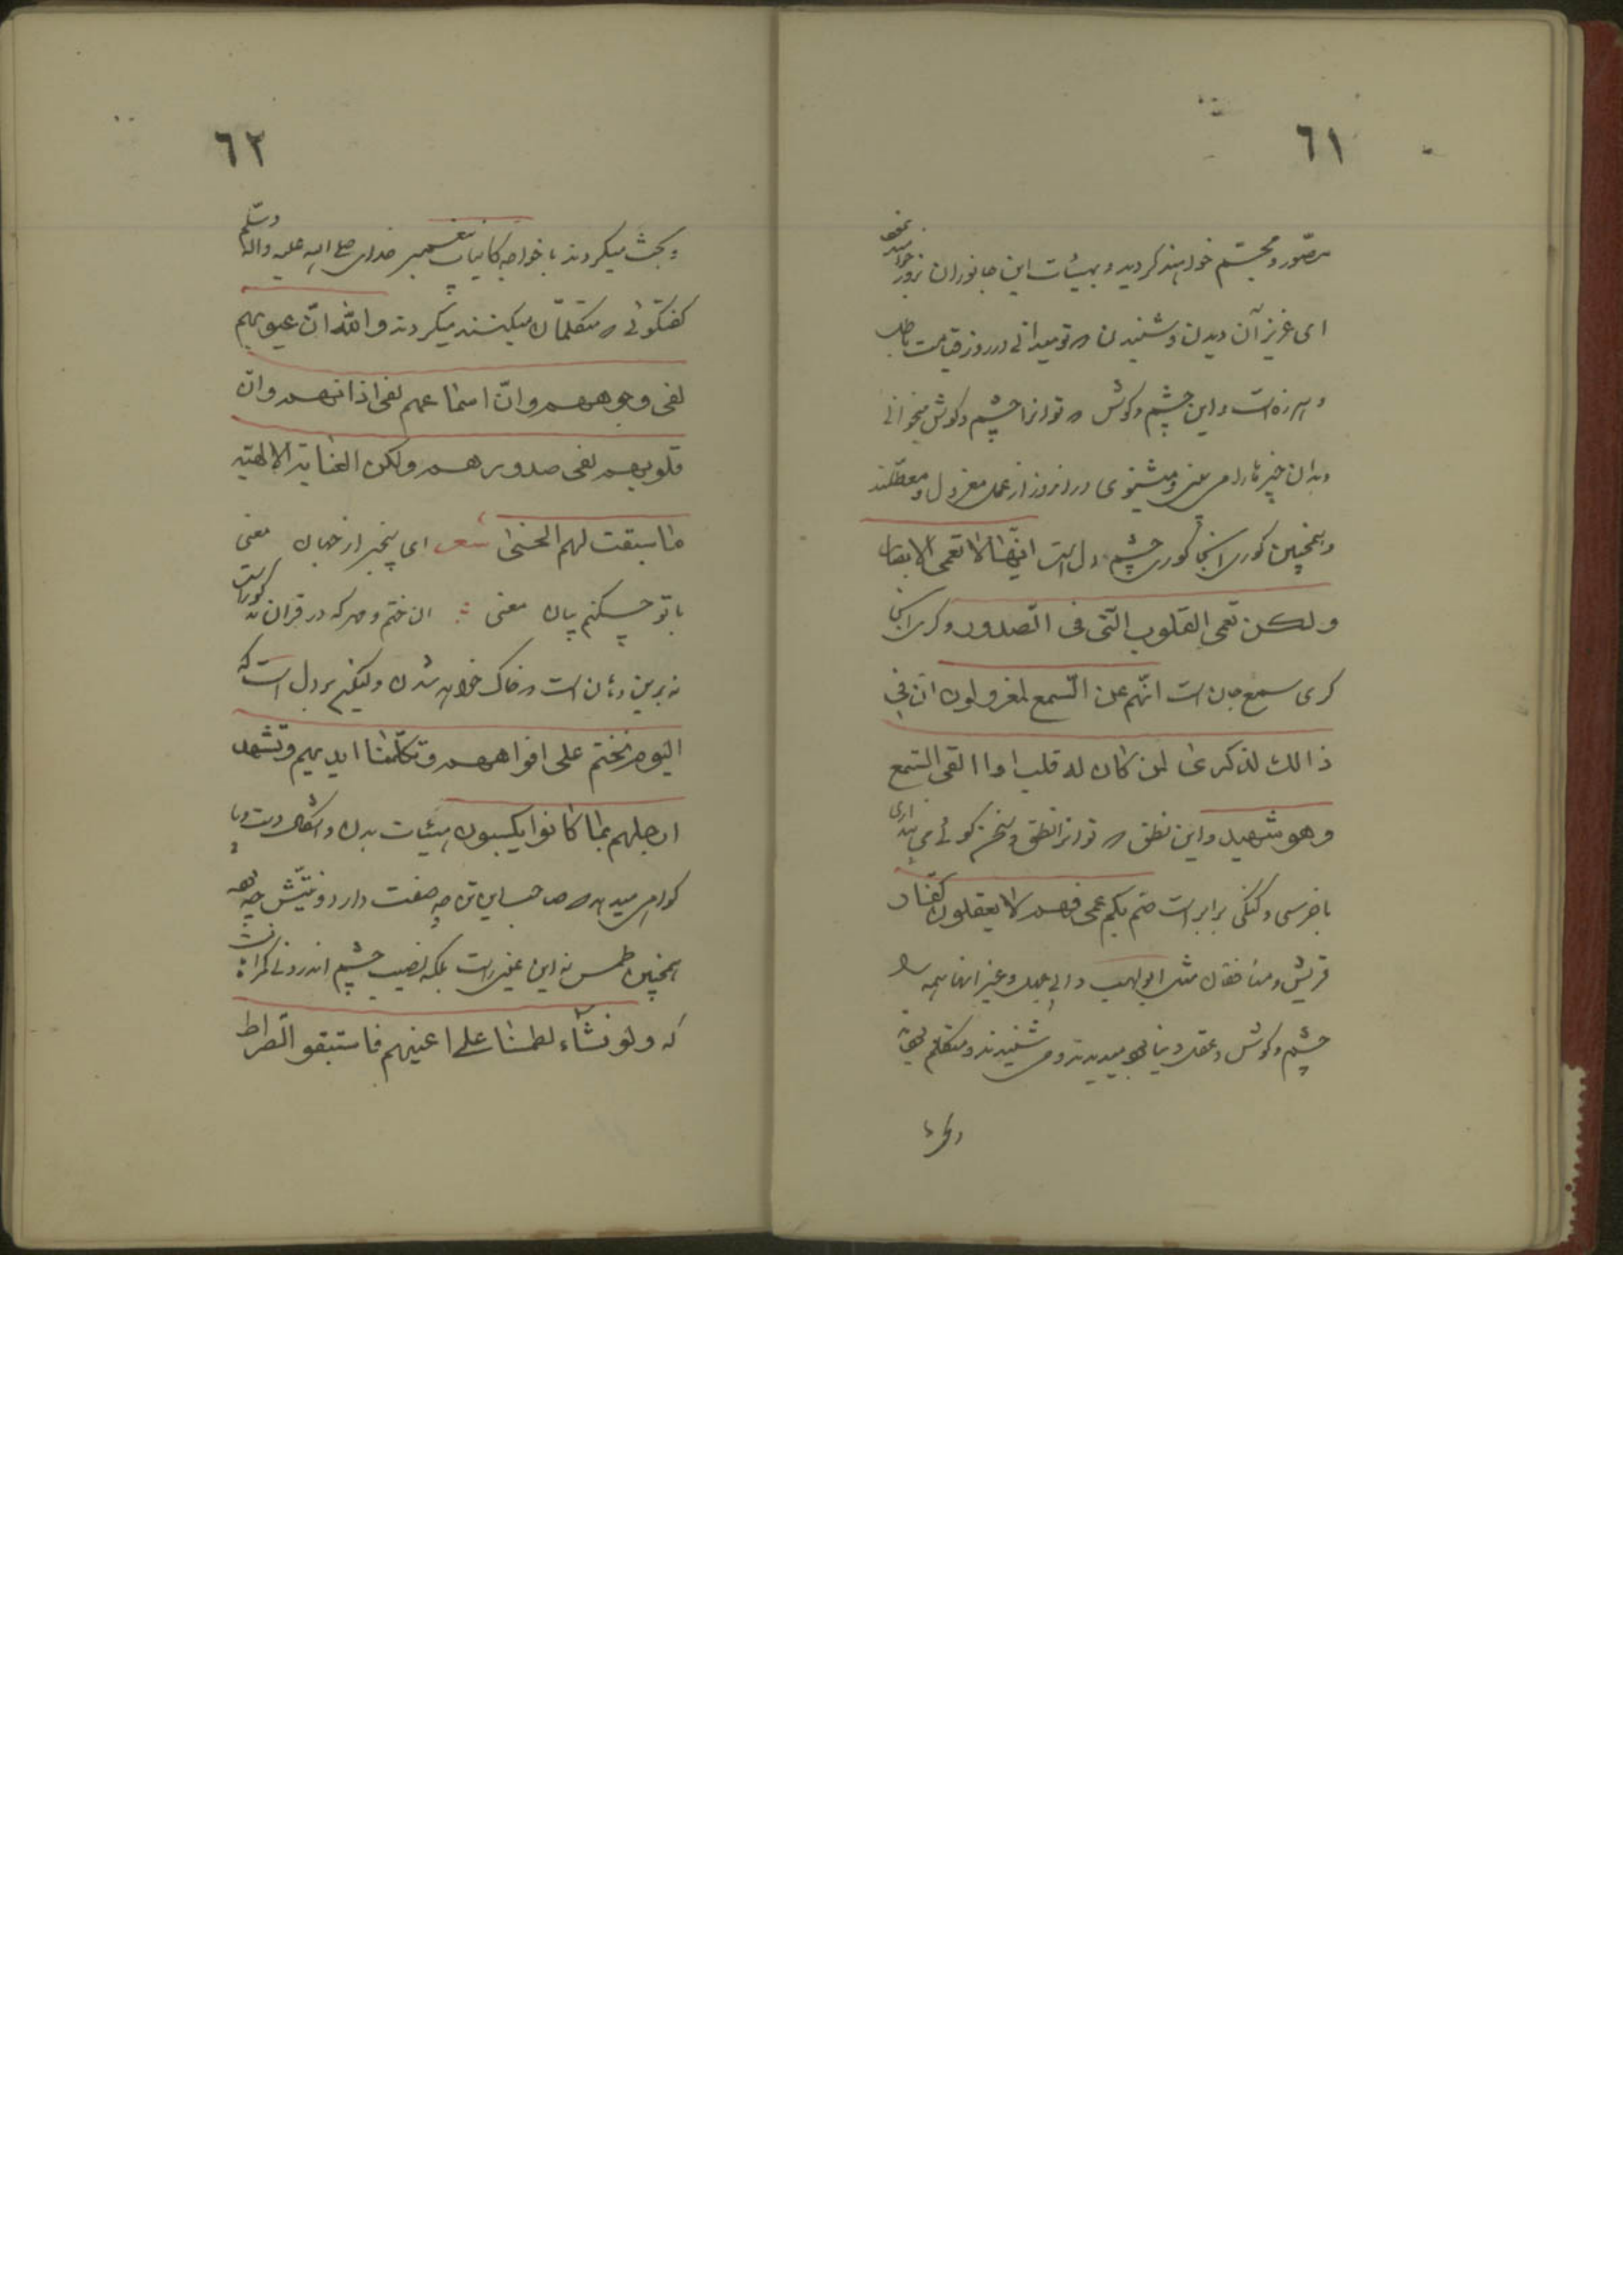 ٦١
مصّور و مجسّم خواهند کردید و بهیئات این جانوران بروز خواهند نمود
ای عزیز آن دیدن و شنیدن که تو میدانی در روز قیامت باطل
و هرزه است و این چشم و کوش که تو انرا چشم و کوش میخوانی
و بدان چیزها را می بینی و میشنوی در انروز از عمل معزول و معطّلند
و همچنین کوری انجا کوری چشم دل است انّها لا تعمی الابصار
ولکن تعمی القلوب الّتی فی الصّدور و کری انجا
کری سمع جان است انّهم عن السّمع لمعزولون انّ فی
ذالک لذکری لمن کان له قلب او القی السّمع
و هو شهید و این نطق که تو انرا نطق و سخن کوئی می پنداری
با خرسی و کنکی برابر است صمّ بکم عمی فهم لا یعقلون کفّار
قریش و منافقان مثل ابولهب و ابی جهل و غیر انها همه را
چشم و کوش و عقل دنیا بود میدیدند و می شنیدند و متکلّم بودند
و بحث
٦٢
و بحث میکردند با خواجه کاینات پیغمبر خدای صلی الله علیه واله وسلّم
کفتکوئی که متکلمّان میکنند میکردند و اللّه انّ عیونهم
لفی وجوههم و انّ اسماعهم لفی اذانهم و انّ
قلوبهم لفی صدورهم ولکن العنایة الالهیّه
ما سبقت لهم الحسنی شعر ای بیخبر از جهان معنی
با تو چکنم بیان معنی ان ختم و مهر که در قران مذکور است
نه برین دهان است که خاک خواهد شدن ولیکن بر دل است که
الیوم نختم علی افواههم و تکلّمنا ایدیهم و تشهد
ارجلهم بما کانوا یکسبون هیئات بدن و اشکال دست و پا
کواهی میدهد که صاحب این تن چه صفت دارد و نیّتش چه بوده
همچنین طمس نه این عین راست بلکه نصیب چشم اندرونی کمراهان است
که ولو نشاء لطمسنا علی اعینهم فاستبقو الصّراط